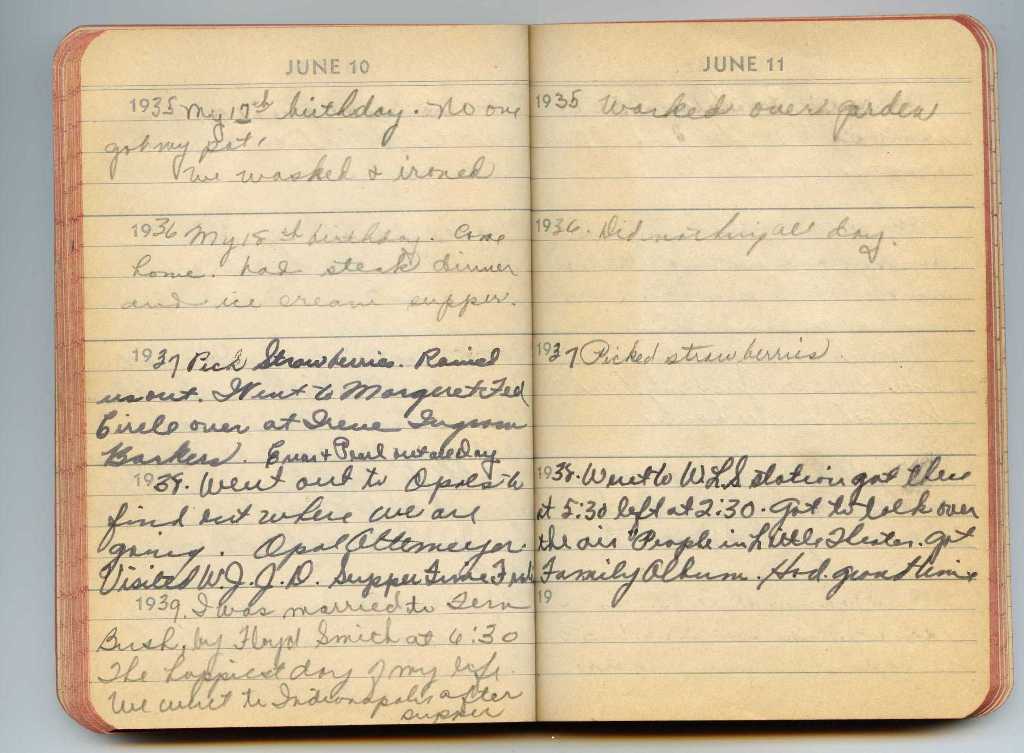 JUNE 10
1935 My 17th birthday. No one
got my pat.
We washed & ironed
1936 My 18th birthday. Come
home. had steak dinner
and ice cream supper.
1937 Pick Strawberries. Rained
us out. Went to Margaret Fed
Circle over at Irene Ingram
Barkers. & Pearl out all day
1938. Went out to Opals to
find out where we are
going. Opal Altemeyer.
Visited W.J.J.D. Supper Time
1939. I was married to Fern
Bush, by Floyd Smith at 6:30
The happiest day of my life.
We went to Indianapolis after
supper
JUNE 11
1935 Worked over garden
1936. Did nothing all day.
1937 Picked strawberries.
1938. Went to W.L.S station got there
at 5:30 left at 2:30. Got to talk over
the air "People in Little Theater. Got
Family Album. Had grand time
19